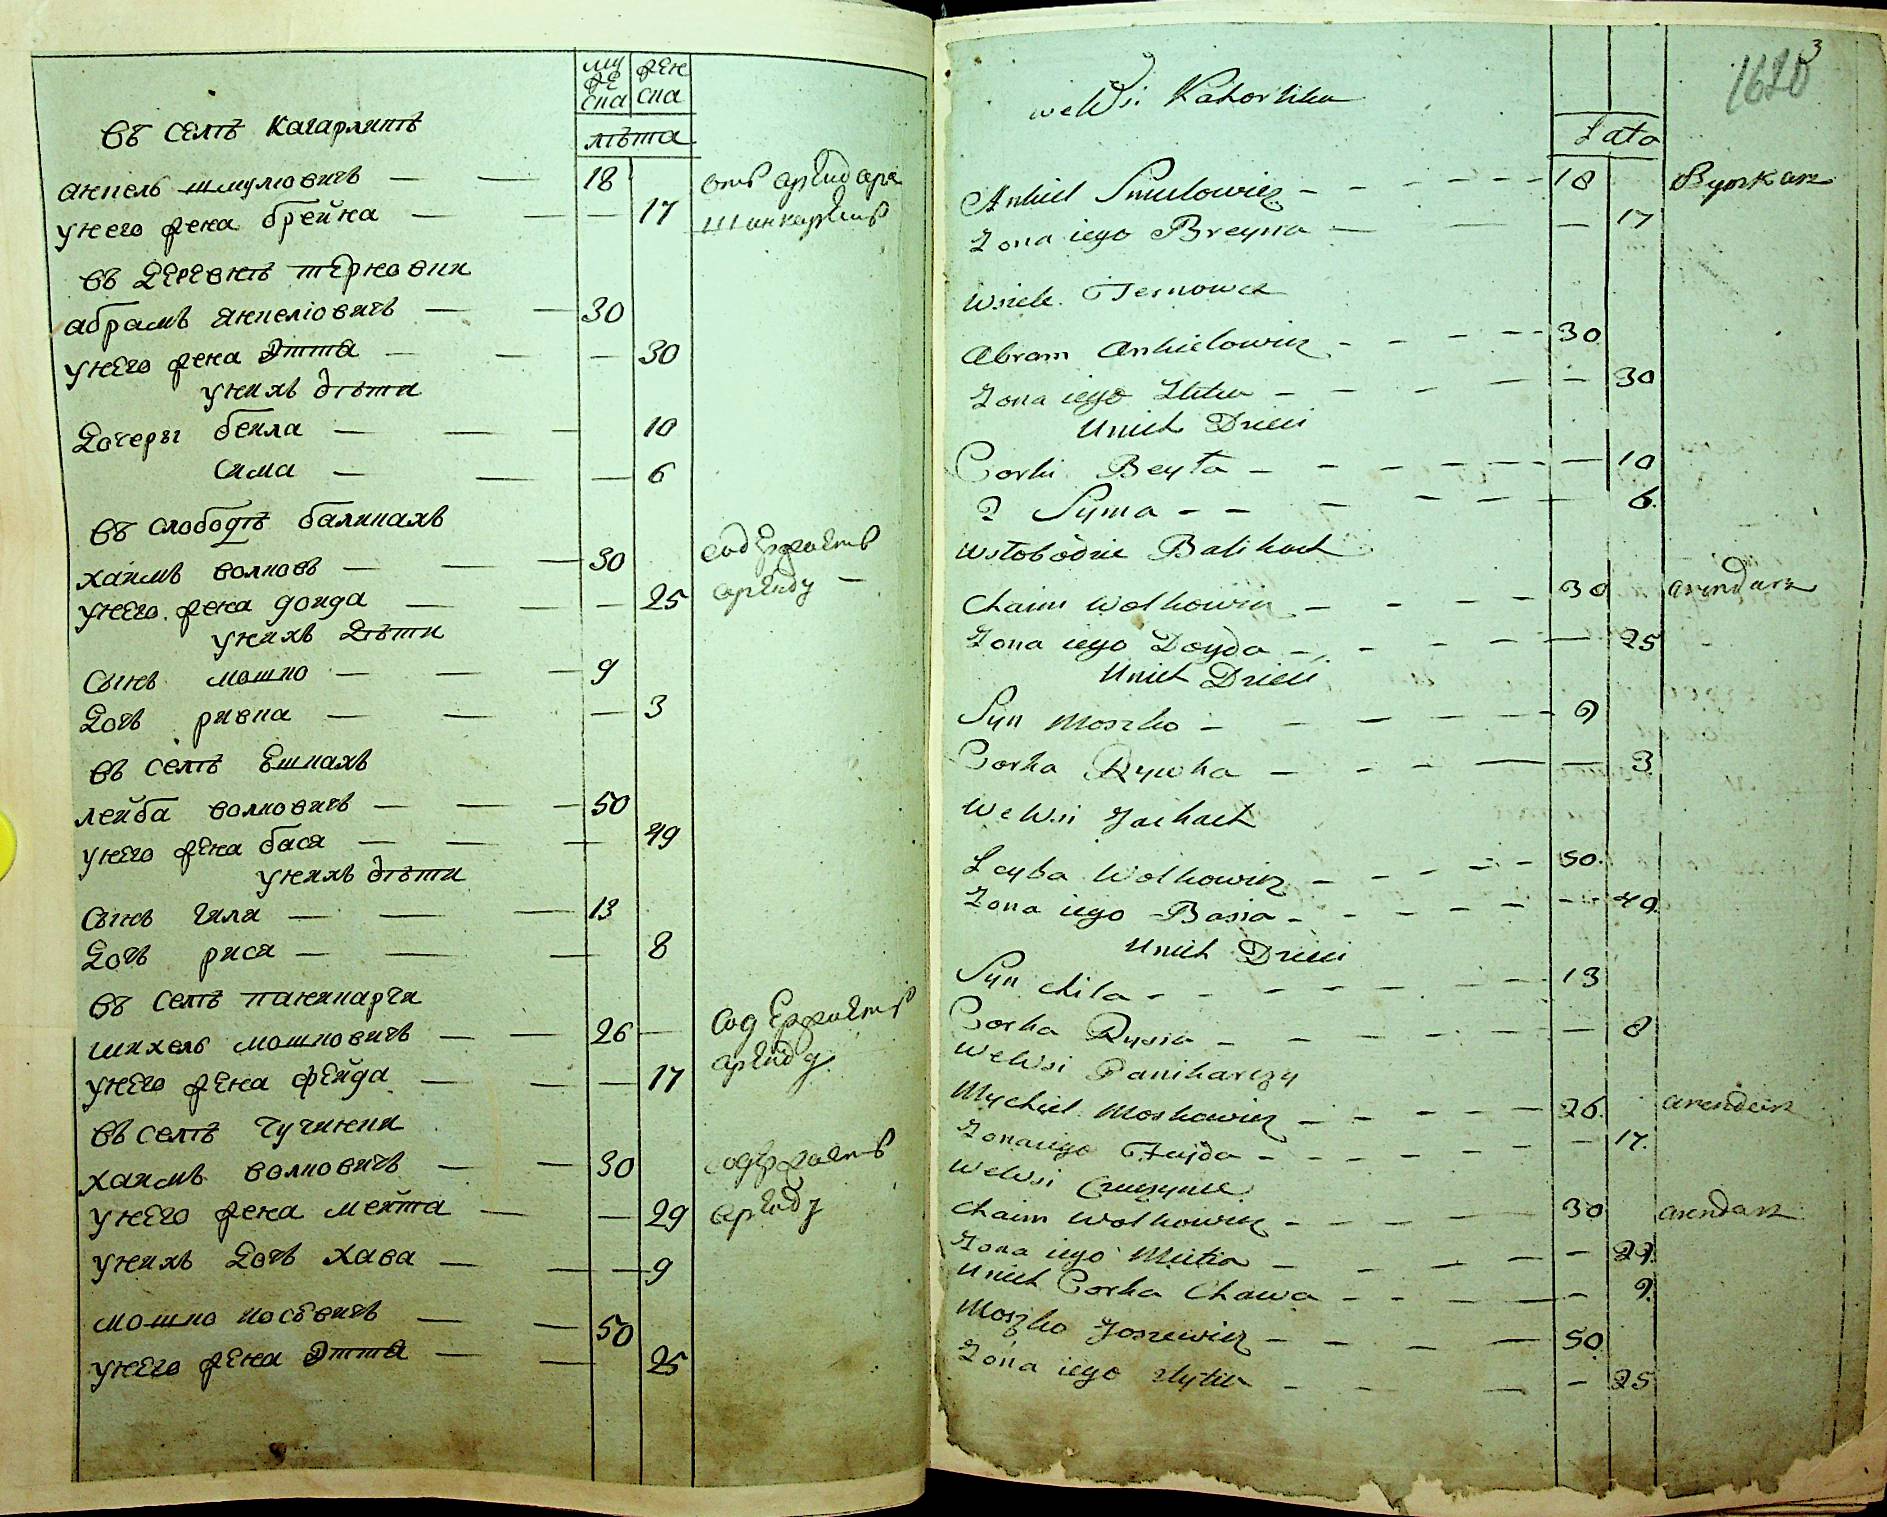 му
же
ска
жен
ска
лѣта
въ селѣ кагарликѣ
янкель шмулювичъ — — 18 отъ арендара
унего жена брейна — — — 17 шинкаретъ
въ деревнѣ терновки
абрамъ янкеліовичъ — — 30
унего жена Этта — — — 30
унихъ дѣти
дочеры бейла — — — 10
сима — — — 6
въ слободѣ баликахъ
хаимъ волковъ — — — 30 содержаетъ
унего жена дойда — — — 25 аренду —
унихъ дѣти
сынъ мошко — — — 9
дочъ ривка — — — 3
въ селѣ ешкахъ
лейба волковичъ — — — 50
унего жена бася — — — 49
унихъ дѣти
сынъ гиля — — — 13
дочъ рися — — — 8
въ селѣ паникарчи
михель мошковичъ — — 26 — содержаетъ
унего жена фейда — — — 17 аренду
въ селѣ чучинки
хаимъ волковичъ — — 30 содержаетъ
унего жена мейта — — 29 аренду
унихъ дочъ хава — — — 9
мошко иосѣвичъ — — 50
унего жена Этта — — 25
3
1620
weWsi Kahorlika
Lata
Ankiel Smulowicz - - - - - - 18 Bynkarz
Zona iego Breyna — — — 17
Wsiele Ternowce
Abram Ankielowicz - - - - - 30
Zona iego Ittta - - - - - 30
Unich Dzieci
Corki Beyła - - - - - - — 10
2 Syma - - - - - - — 6.
Wsłobodzie Balikach
Chaim Wolkowicz - - - - 30 arendarz
Zona iego Doyda - - - - - — 25
Unich Dzieci
Syn Moszko - - - - - - 9
Corka Rywka - - - - — — 3
WeWsi Jaskach
Leyba Wolkowicz - - - - - 50.
Zona iego Basia - - - - - - - 49.
Unich Dzieci
Syn Chila - - - - - - - 13
Corka Rysia - - - - - - — 8
WeWsi Panikarczy
Mychiel Moskowicz - - - - - 26. arendarz
Zona iego Fejda - - - - - - — 17.
WeWsi Czuczynce
Chaim Wolkowicz - - - - — 30 arendarz
Zona iego Meitia - - - - — - 29.
Unich Corka Chawa - - - - — - 9.
Moszko Joszewicz - - - - — 50
Zona iego Etytta - - — - 25